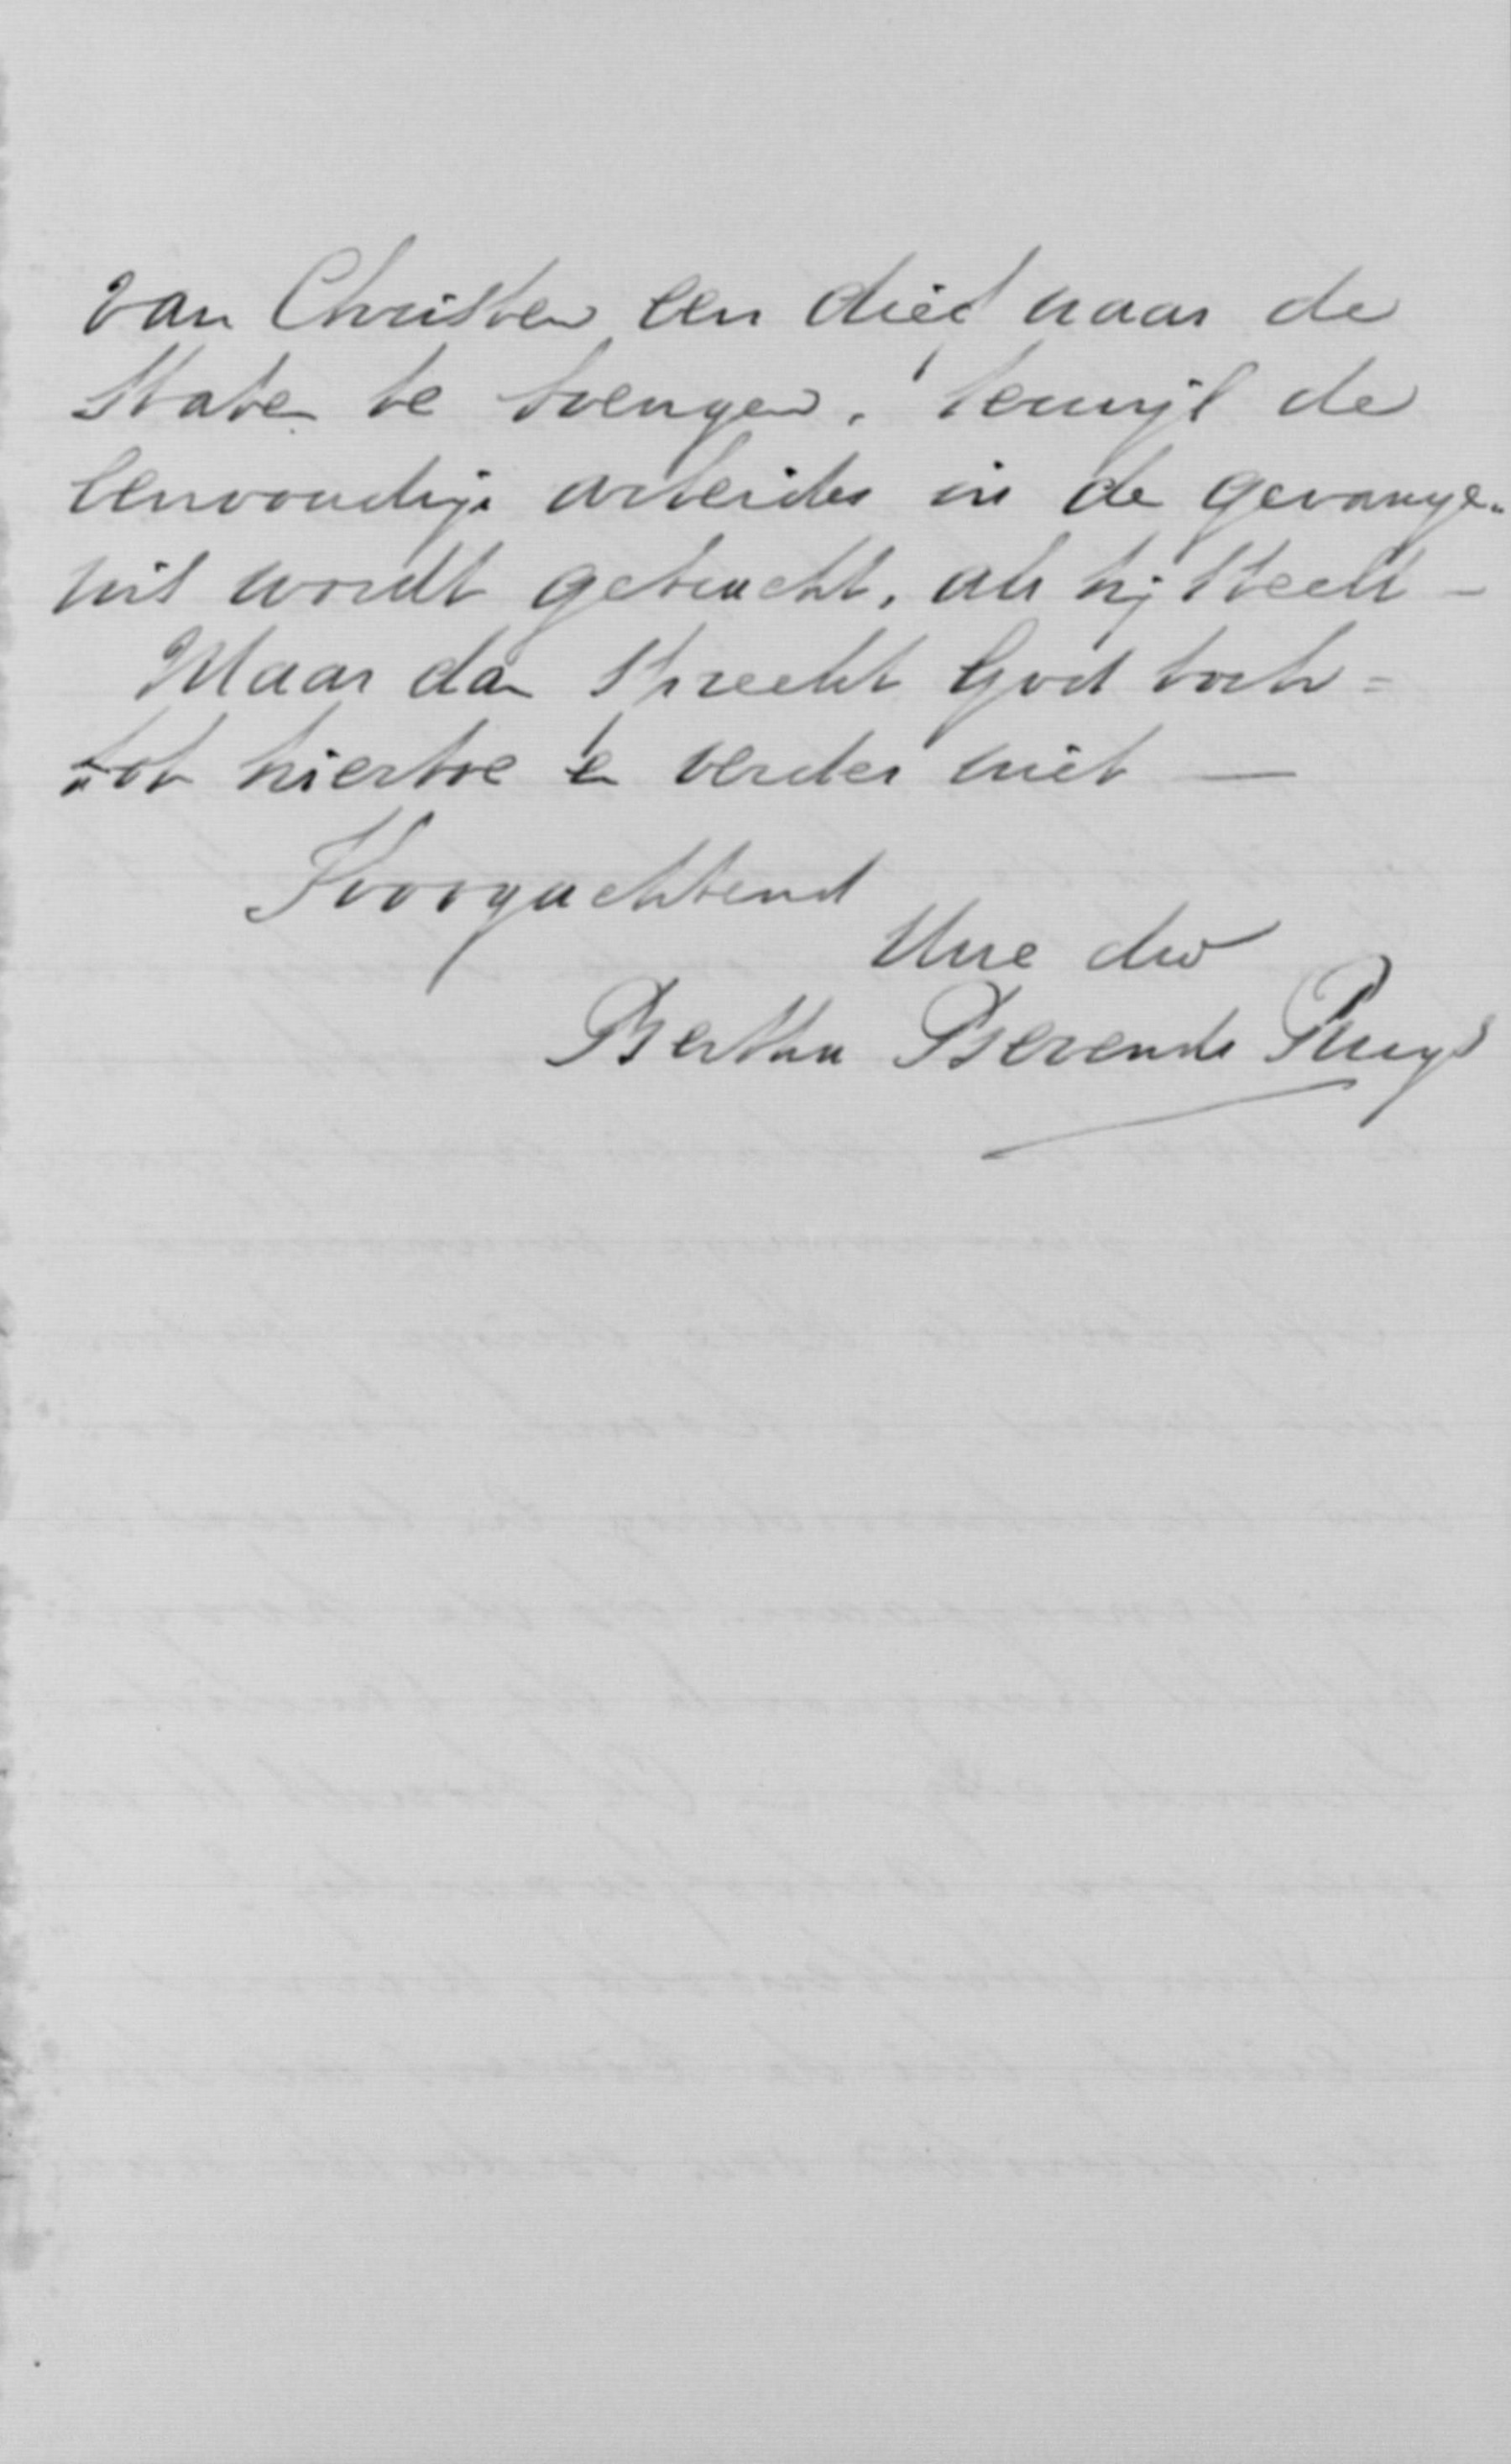 van Christen een dief naar de
Staten te brengen, terwijl de
eenvoudige arbeider in de gevange-
nis wordt gebracht, als hij steelt –
Maar dan spreekt God toch =
tot hiertoe en verder niet —
Hoogachtend
Uwe dw
Bertha Berends